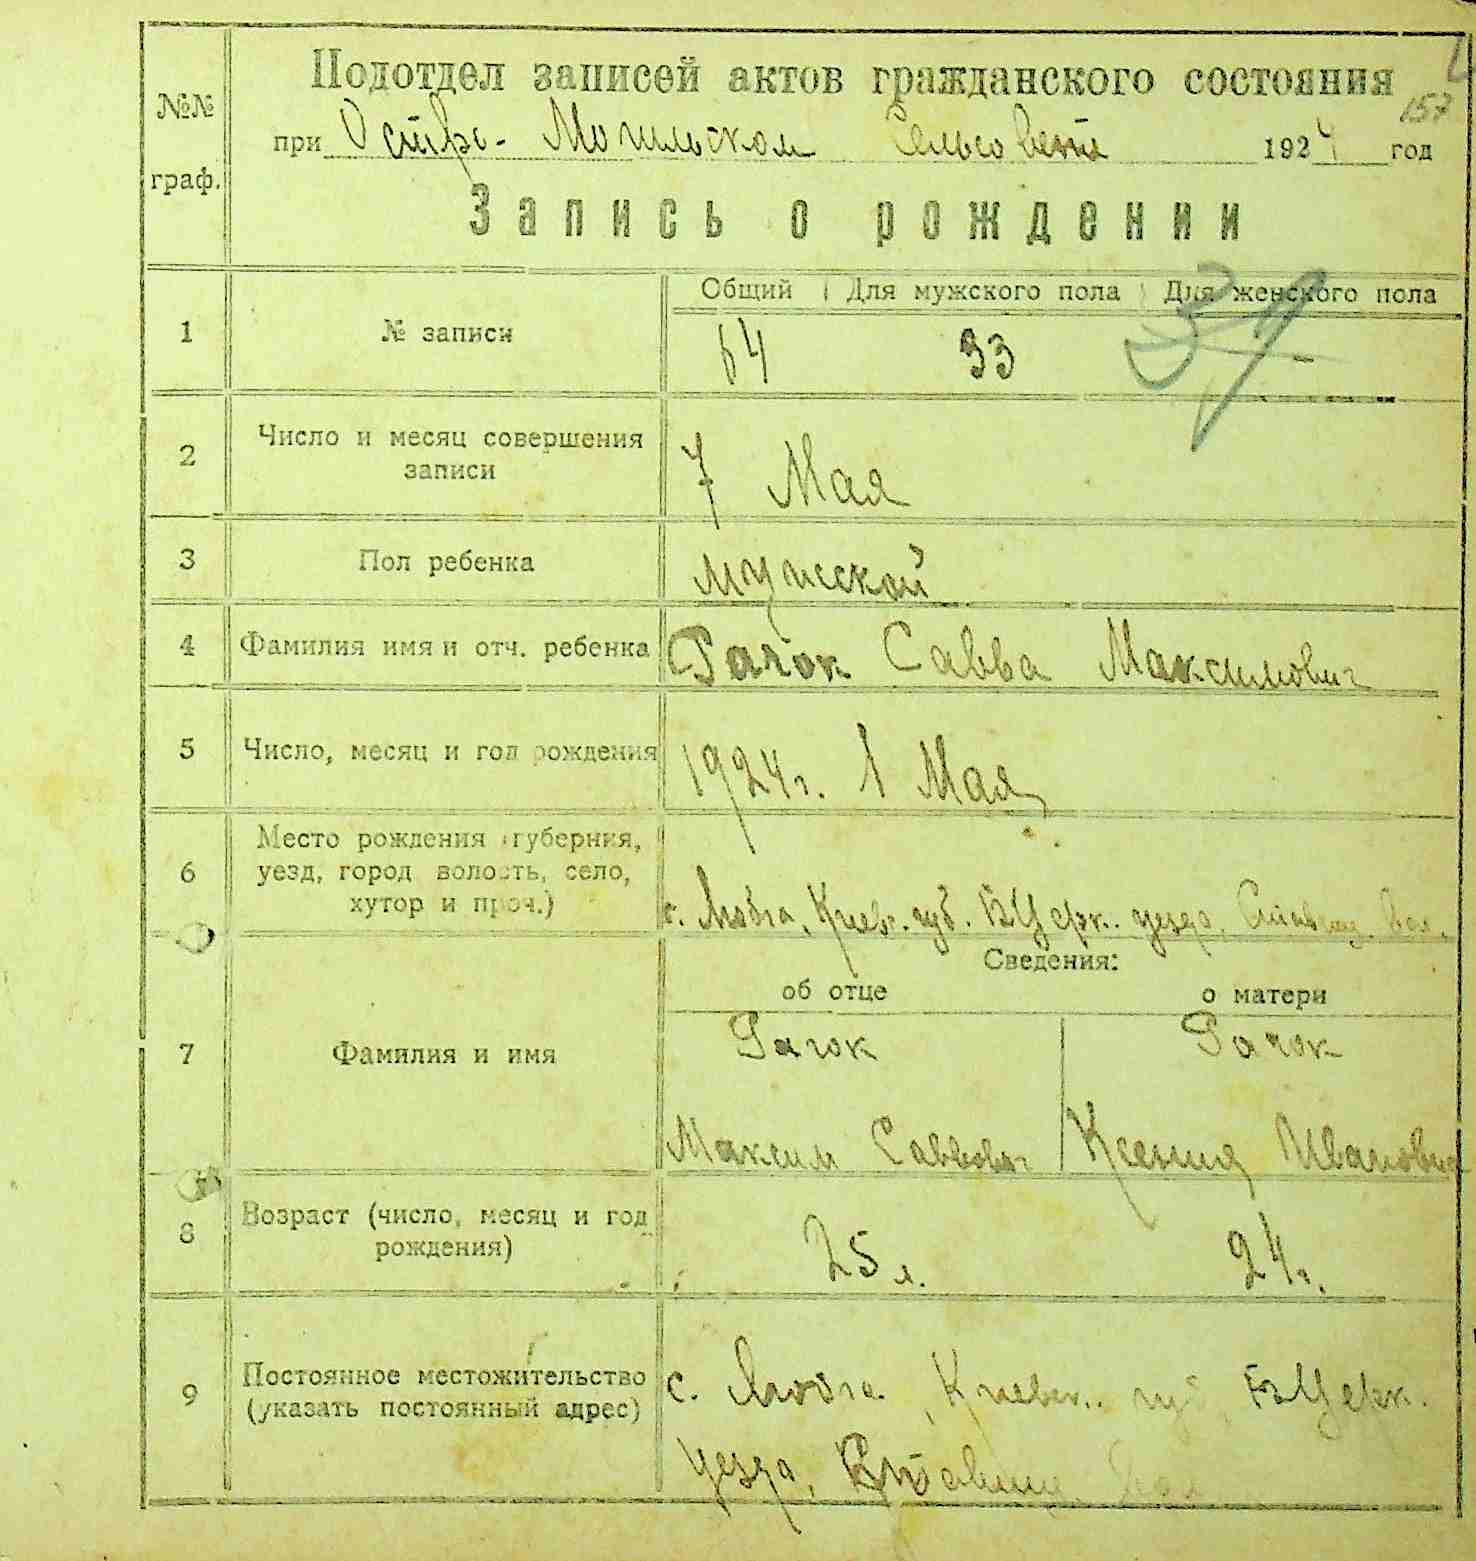 157
№№ граф.
Подотдел записей актов гражданского состояния
при Остро-Могильском Сельсовете 1924 год
Запись о рождении
Общий Для мужского пола Для женского пола
1 № записи 64 33 -
37
2 Число и месяц совершения
записи 7 Мая
3 Пол ребенка мужской
4 Фамилия имя и отч. ребенка Рачок Савва Максимович
5 Число, месяц и год рождения 1924 г. 1 Мая
Место рождения (губерния,
6 уезд, город волость, село,
хутор и проч.) с. Любча, Киев. губ. БЦерк. уезда, Ставищ. вол.
Сведения:
об отце о матери
7 Фамилия и имя Рачок Рачок
Максим Саввович Ксения Ивановна
8 Возраст (число, месяц и год
рождения) 25 л. 24 г.
9 Постоянное местожительство
(указать постоянный адрес) с. Любча, Киевск. губ, БЦерк.
уезда, Ставищ. вол